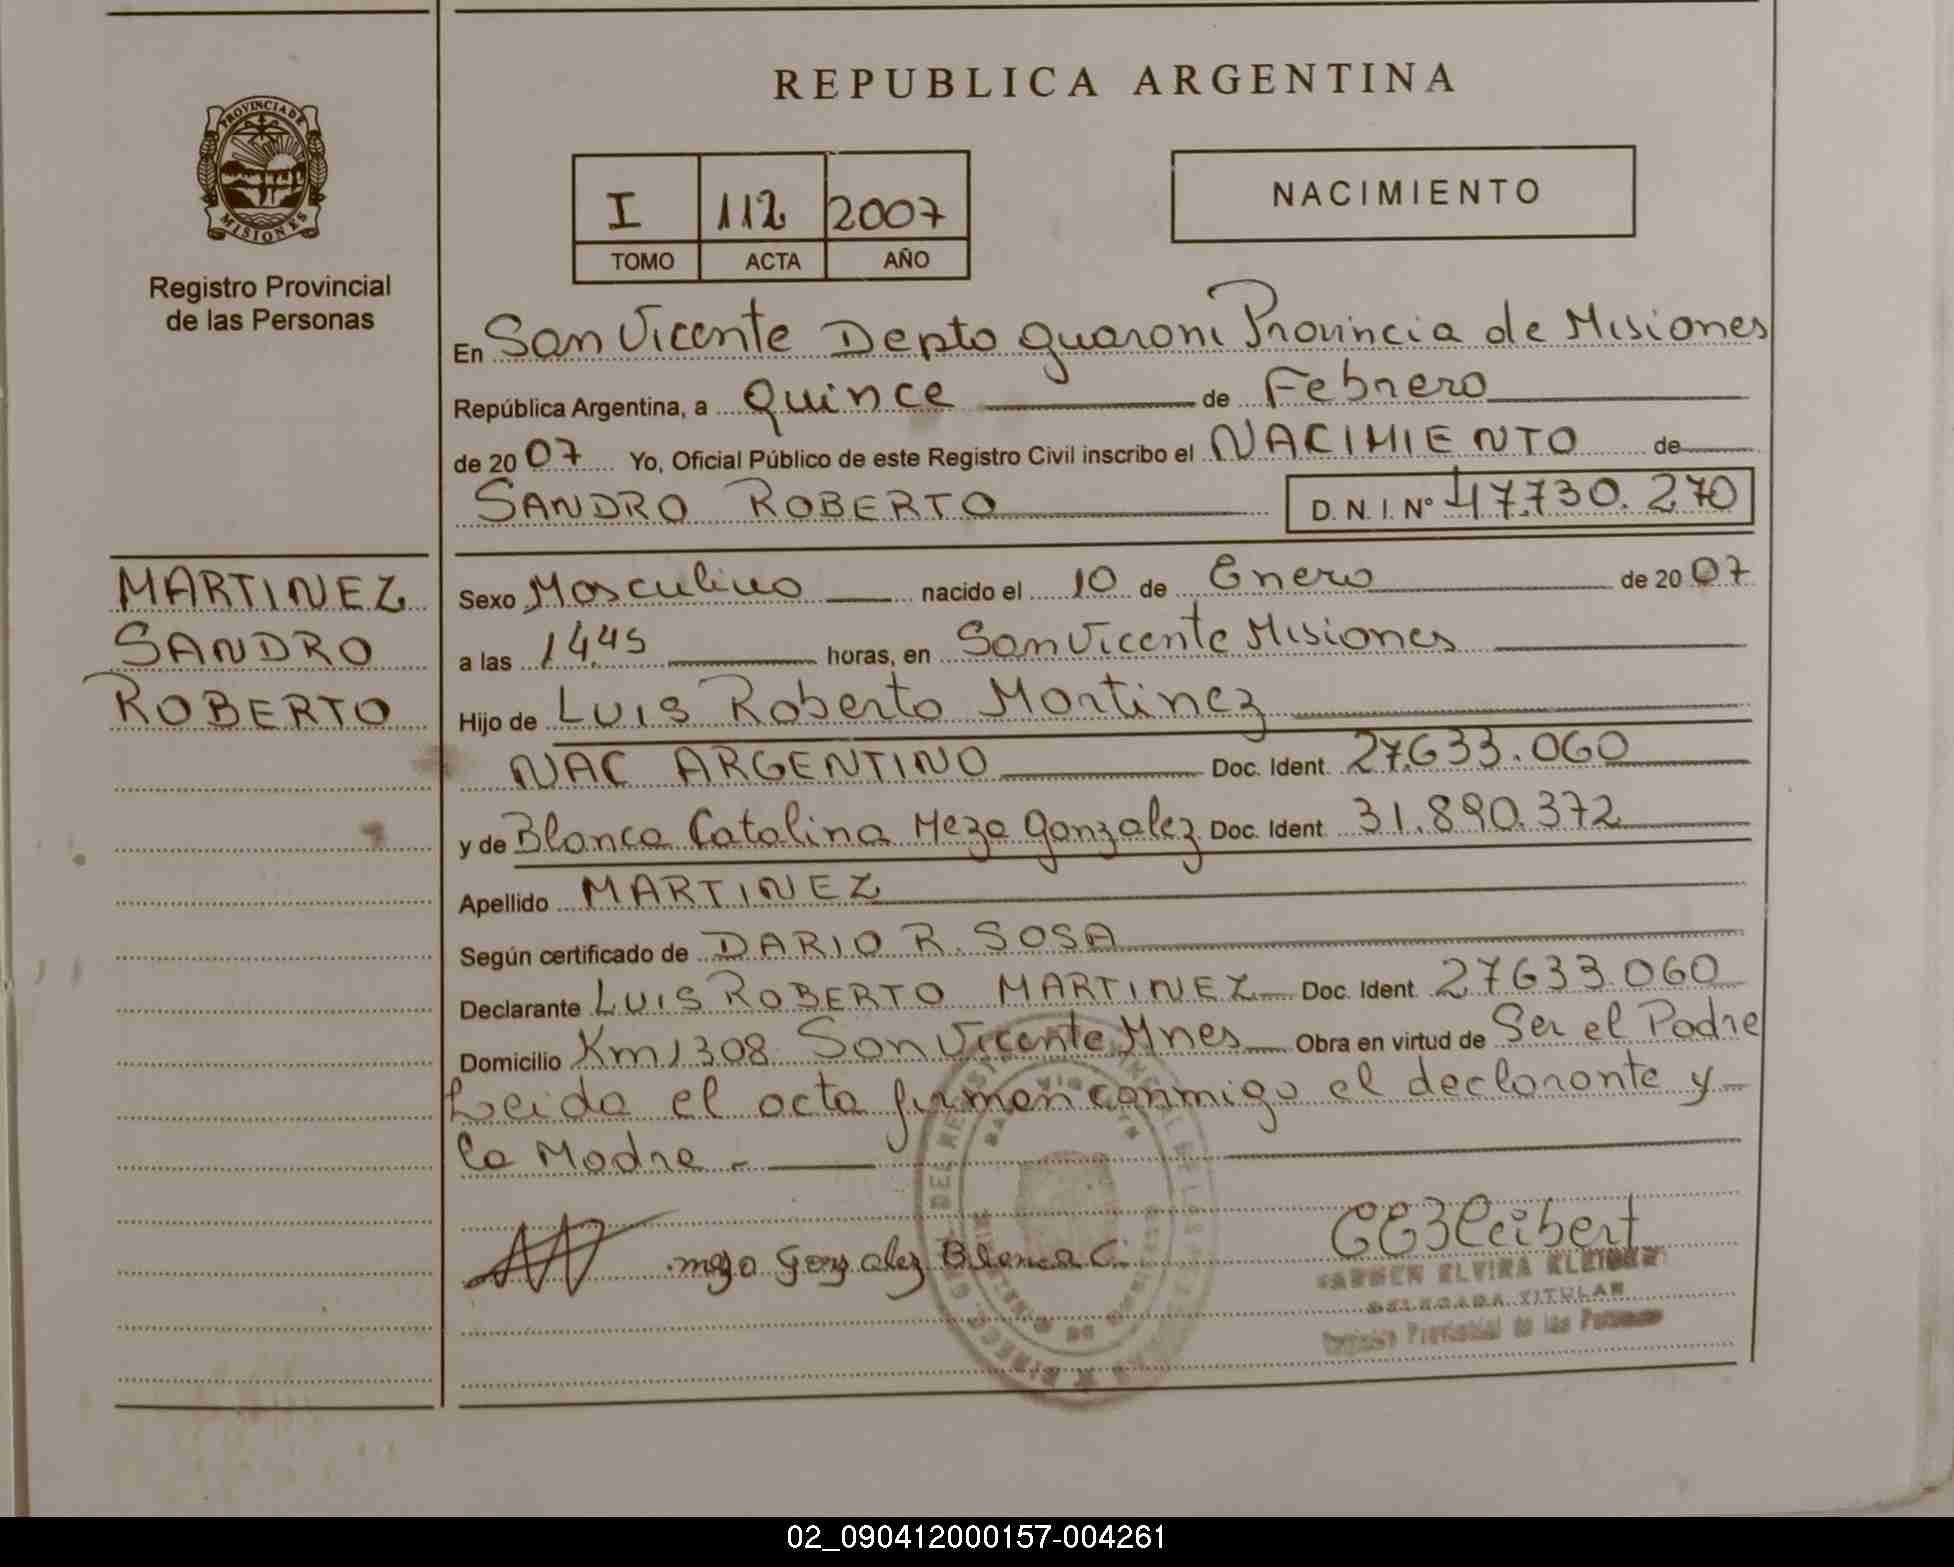 REPUBLICA ARGENTINA
PROVINCIA DE
MISIONES
Registro Provincial
de las Personas
I 112 2007
TOMO ACTA AÑO
NACIMIENTO
En San Vicente Depto guarani Provincia de Misiones
República Argentina, a Quince de Febrero
de 2007 Yo, Oficial Público de este Registro Civil inscribo el NACIMIENTO de
SANDRO ROBERTO D.N.I. Nº 47.730.270
MARTINEZ
SANDRO
ROBERTO
Sexo Masculino nacido el 10 de Enero de 2007
a las 14.45 horas, en San Vicente Misiones
Hijo de Luis Roberto Martinez
NAC ARGENTINO Doc. Ident. 27.633.060
y de Blanca Catalina Meza Gonzalez Doc. Ident. 31.890.372
Apellido MARTINEZ
Según certificado de DARIO R. SOSA
Declarante LUIS ROBERTO MARTINEZ Doc. Ident. 27633.060
Domicilio Km 1308 San Vicente Mnes Obra en virtud de Ser el Padre
Leida el acta firman conmigo el declarante y
la Madre.-
meza Gonzalez Blanca C.
CARMEN ELVIRA KLEIBERT
DELEGADA TITULAR
Registro Provincial de las Personas
02_090412000157-004261